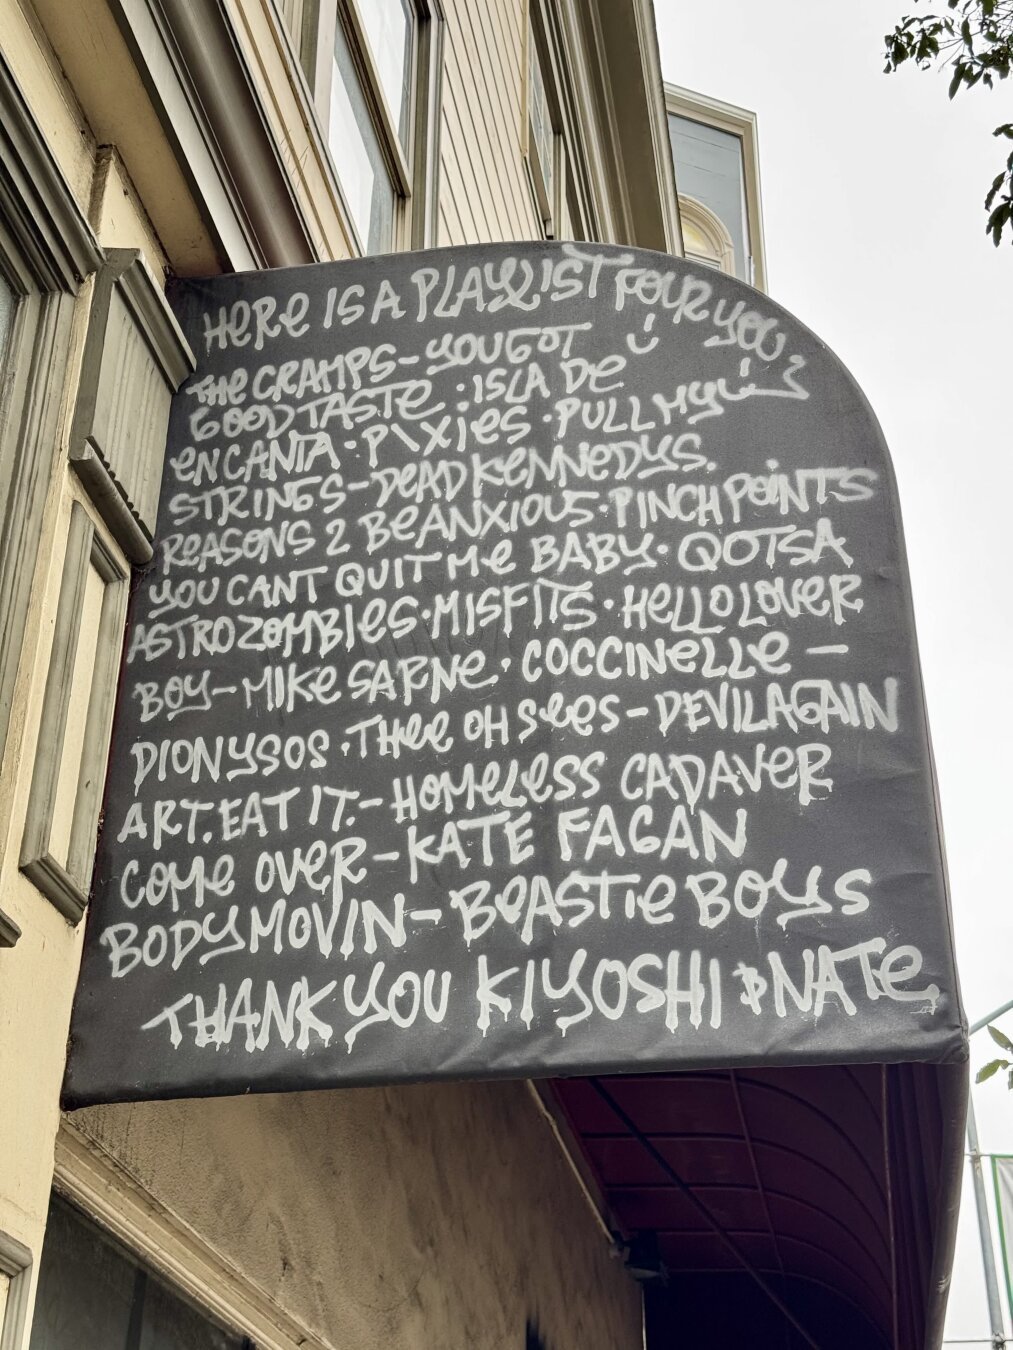 HERE IS A PLAYLIST FOUR YOU
THE CRAMPS-YOU GOT
GOOD TASTE · ISLA DE
ENCANTA · PIXIES · PULL MY
STRINGS-DEAD KENNEDYS.
REASONS 2 BE ANXIOUS · PINCH POINTS
YOU CANT QUIT ME BABY · QOTSA
ASTRO ZOMBIES · MISFITS · HELLO LOVER
BOY-MIKE SARNE · COCCINELLE -
DIONYSOS · THEE OH SEES - DEVIL AGAIN
ART. EAT IT. - HOMELESS CADAVER
COME OVER - KATE FAGAN
BODY MOVIN - BEASTIE BOYS
THANK YOU KIYOSHI & NATE